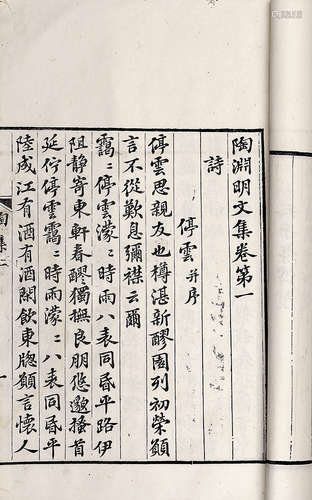 陶淵明文集卷第一
詩
停雲并序
停雲思親友也罇湛新醪園列初榮願
言不從歎息彌襟云爾
靄〻停雲濛〻時雨八表同昏平路伊
阻靜寄東軒春醪獨撫良朋悠邈搔首
延佇停雲靄〻時雨濛〻八表同昏平
陸成江有酒有酒閒飲東牎願言懷人
陶集一
一